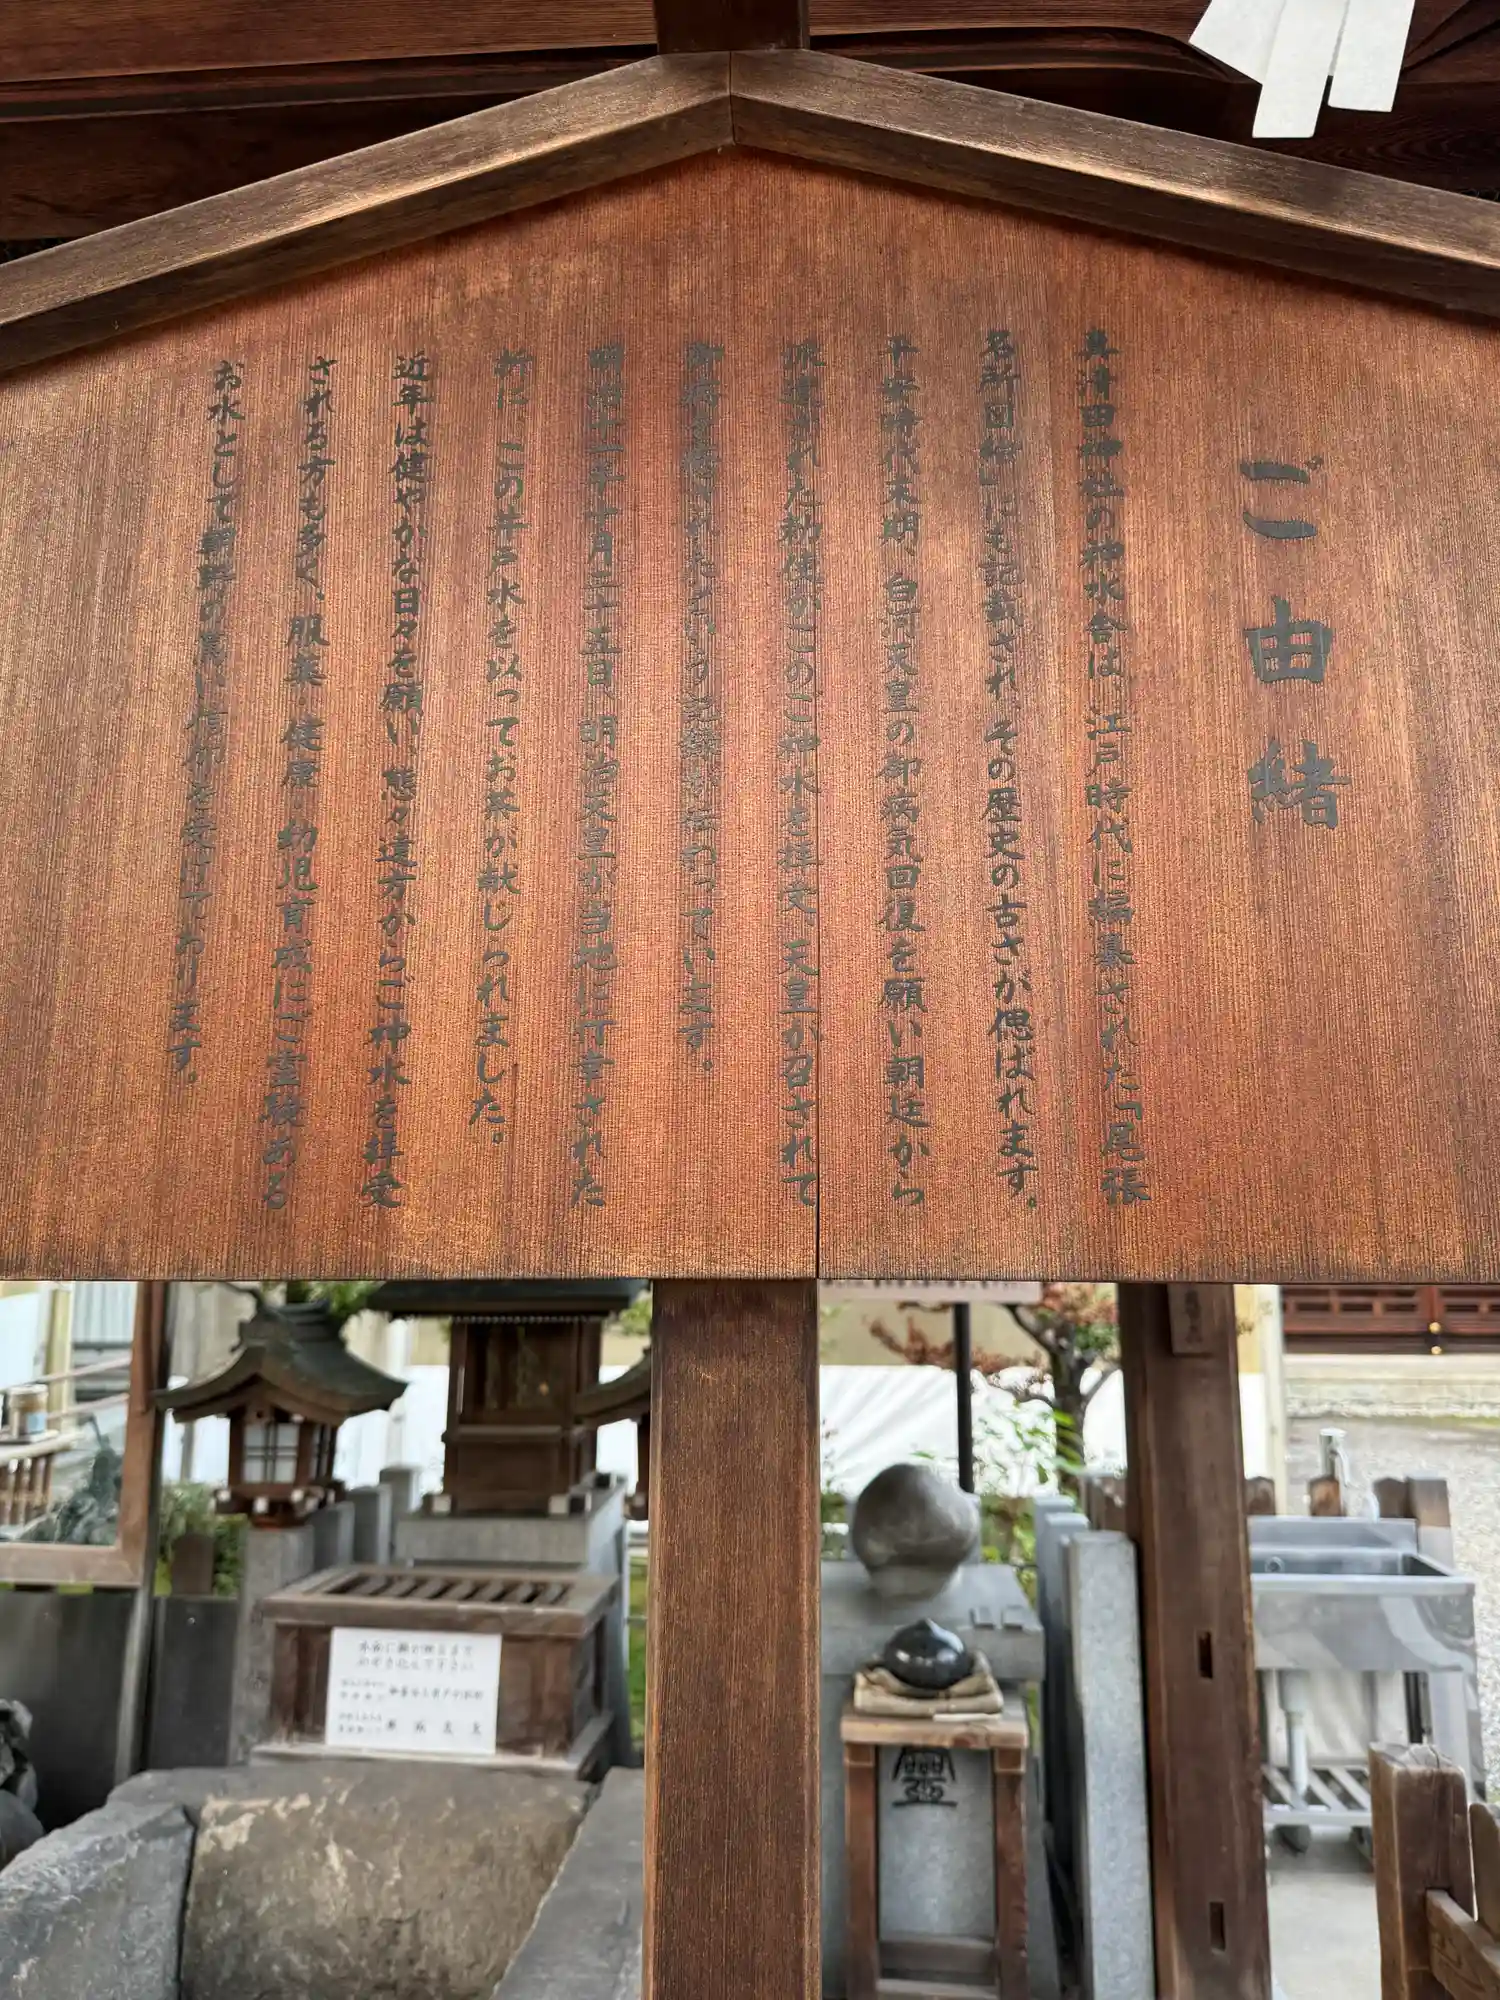 ご由緒
真清田神社の神水舎は、江戸時代に編纂された「尾張
名所図絵」にも記載され、その歴史の古さが偲ばれます。
平安時代末期、白河天皇の御病気回復を願い朝廷から
派遣された勅使がこのご神水を拝受、天皇が召されて
御病を癒されたという記録が伝わっています。
明治十一年十月二十五日、明治天皇が当地に行幸された
折に、この井戸水を以ってお茶が献じられました。
近年は健やかな日々を願い、態々遠方からご神水を拝受
される方も多く、服薬・健康・幼児育成にご霊験ある
お水として朝野の篤い信仰を享けております。